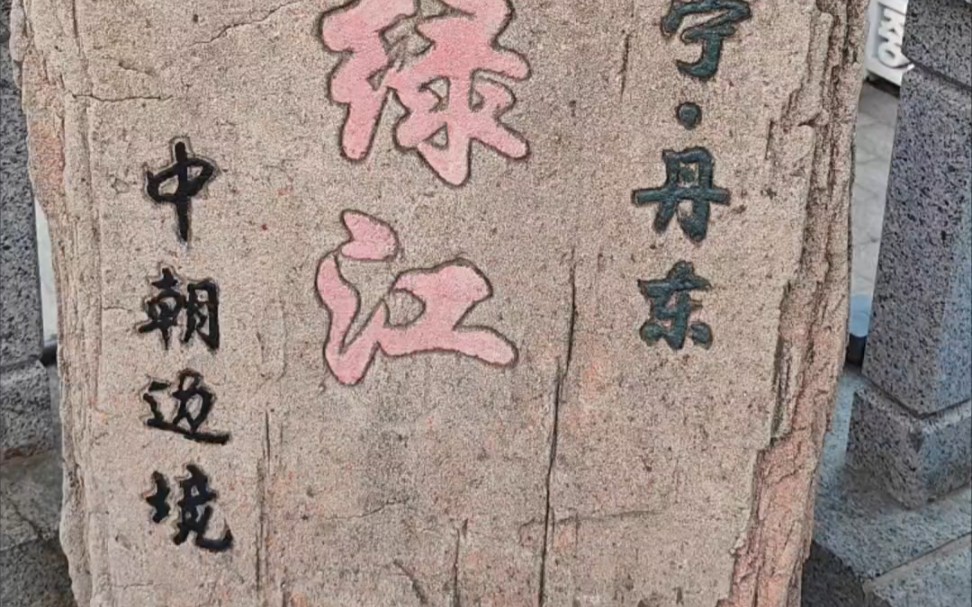 宁·丹东
绿江
中朝边境